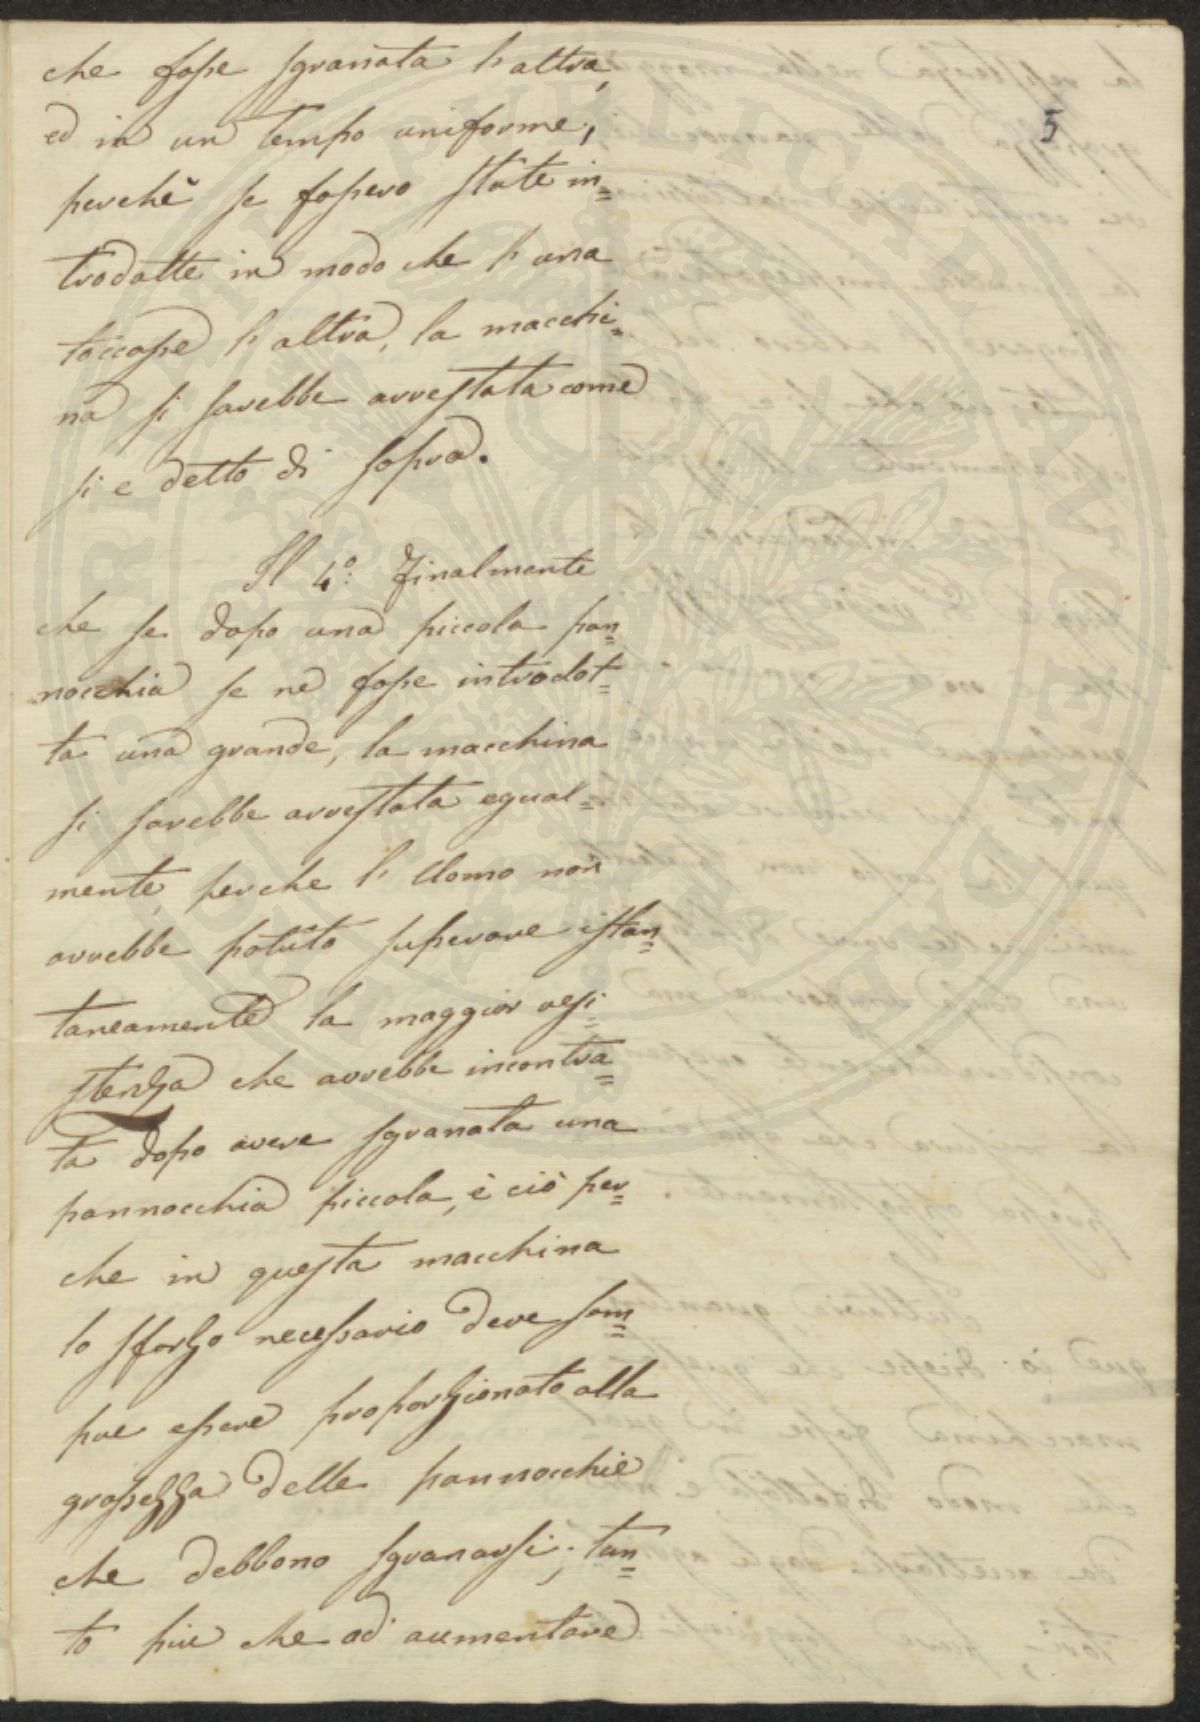 5
che fosse sgranata l'altra,
ed in un tempo uniforme;
perchè se fossero state in=
trodotte in modo che l'una
toccasse l'altra, la macchi=
na si sarebbe arrestata come
si e detto di sopra.
Il 4º: Finalmente
che se dopo una piccola pan=
nocchia se ne fosse introdot=
ta una grande, la macchina
si sarebbe arrestata egual=
mente, perche l'Uomo non
avrebbe potuto superare istan=
taneamente la maggior resi=
stenza che avrebbe incontra=
ta dopo avere sgranata una
pannocchia piccola, è ciò per=
che in questa macchina
lo sforzo necessario deve sem=
pre essere proporzionato alla
grossezza delle pannocchie
che debbono sgranarsi; tan=
to più che ad aumentare